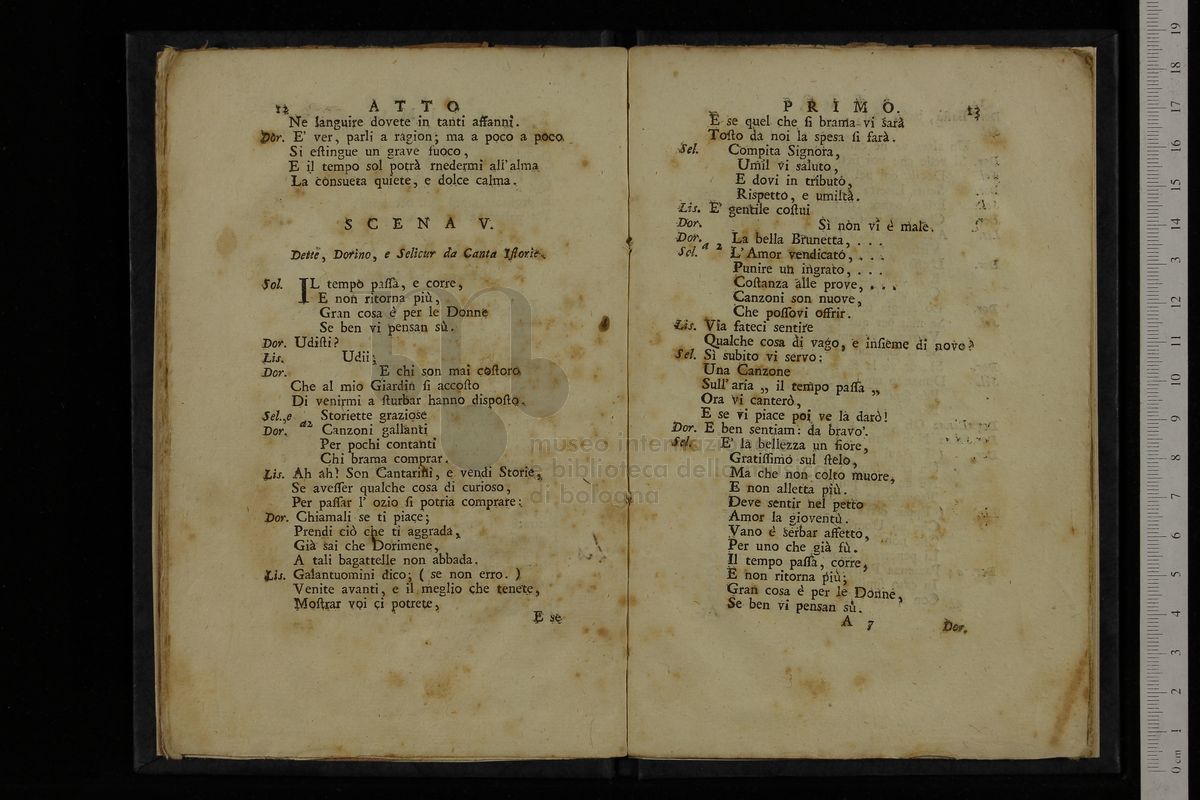 12 ATTO
Ne languire dovete in tanti affanni.
Dor. E' ver, parli a ragion; ma a poco a poco
Si eſtingue un grave fuoco,
E il tempo sol potrà rnedermi all'alma
La consueta quiete, e dolce calma.
SCENA V.
Dette, Dorino, e Selicur da Canta Iſtorie.
Sol. IL tempo paſſa, e corre,
E non ritorna più,
Gran cosa è per le Donne
Se ben vi pensan sù.
Dor. Udiſti?
Lis. Udii;
Dor. E chi son mai coſtoro
Che al mio Giardin ſi accoſto
Di venirmi a ſturbar hanno dispoſto.
Sel., e Storiette graziose
Dor. a2 Canzoni gallanti
Per pochi contanti
Chi brama comprar.
Lis. Ah ah! Son Cantarini, e vendi Storie,
Se aveſſer qualche cosa di curioso,
Per paſſar l' ozio ſi potria comprare;
Dor. Chiamali se ti piace;
Prendi ciò che ti aggrada,
Già sai che Dorimene,
A tali bagattelle non abbada.
Lis. Galantuomini dico; ( se non erro. )
Venite avanti, e il meglio che tenete,
Moſtrar voi ci potrete,
E se
PRIMO. 13
E se quel che ſi brama vi sarà
Toſto da noi la spesa ſi farà.
Sel. Compita Signora,
Umil vi saluto,
E dovi in tributo,
Rispetto, e umiltà.
Lis. E' gentile coſtui
Dor. Sì non vi è male.
Dor. a 2 La bella Brunetta, . . .
Sel. L'Amor vendicato, . . .
Punire un ingrato, . . .
Coſtanza alle prove, . . .
Canzoni son nuove,
Che poſſovi offrir.
Lis. Via fateci sentire
Qualche cosa di vago, e inſieme di novo?
Sel. Sì subito vi servo:
Una Canzone
Sull'aria „ il tempo paſſa „
Ora vi canterò,
E se vi piace poi ve la darò!
Dor. E ben sentiam: da bravo'.
Sel. E' la bellezza un fiore,
Gratiſſimo sul ſtelo,
Ma che non colto muore,
E non alletta più.
Deve sentir nel petto
Amor la gioventù.
Vano è serbar affetto,
Per uno che già fù.
Il tempo paſſa, corre,
E non ritorna più;
Gran cosa è per le Donne,
Se ben vi pensan sù.
A 7 Dor.
museo internazi
biblioteca della musica
di bologna
0 cm 1 2 3 4 5 6 7 8 9 10 11 12 13 14 15 16 17 18 19